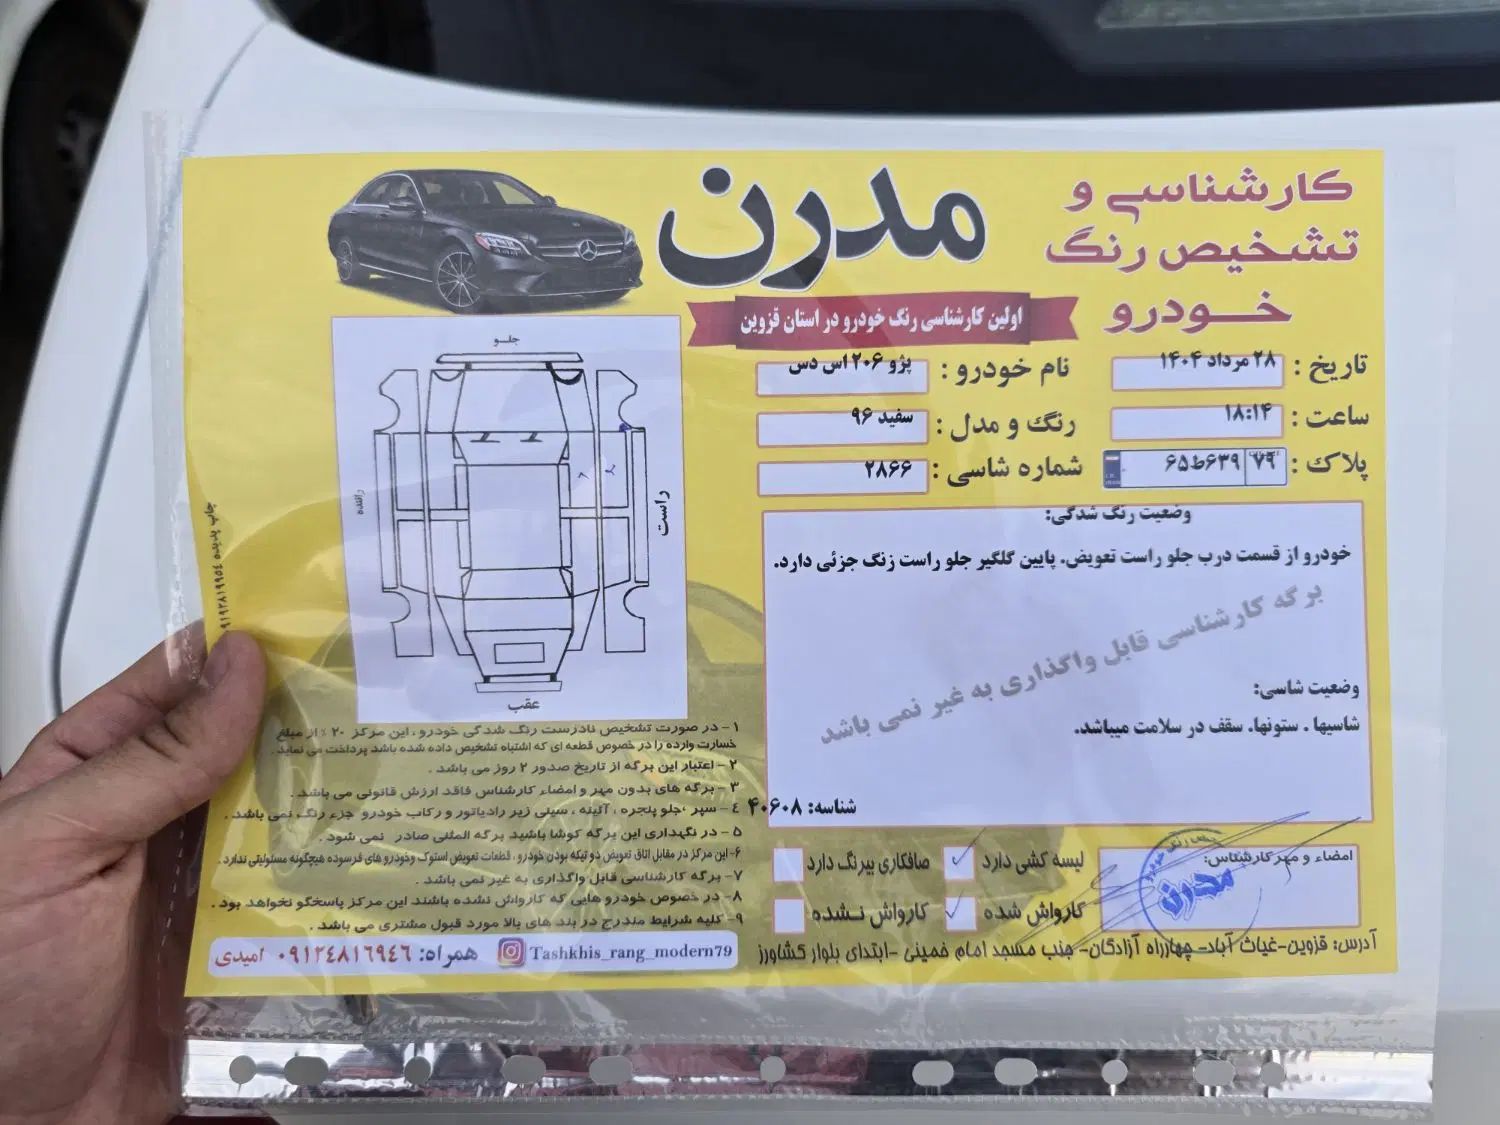 کارشناسی و
تشخیص رنگ
خودرو
مدرن
اولین کارشناسی رنگ خودرو در استان قزوین
تاریخ : ۲۸ مرداد ۱۴۰۴
نام خودرو : پژو ۲۰۶ اس دس
ساعت : ۱۸:۱۴
رنگ و مدل : سفید ۹۶
پلاک : ۷۹ ۶۳۹ط۶۵
شماره شاسی : ۲۸۶۶
وضعیت رنگ شدگی:
خودرو از قسمت درب جلو راست تعویض. پایین گلگیر جلو راست زنگ جزئی دارد.
برگه کارشناسی قابل واگذاری به غیر نمی باشد
وضعیت شاسی:
شاسیها . ستونها. سقف در سلامت میباشد.
شناسه: ۴۰۶۰۸
جلو
راننده
راست
عقب
چاپ پدیده ۰۹۱۹۲۸۱۹۹۵۴
۱- در صورت تشخیص نادرست رنگ شدگی خودرو ، این مرکز ۲۰ ٪ از مبلغ
خسارت وارده را در خصوص قطعه ای که اشتباه تشخیص داده شده باشد پرداخت می نماید .
۲- اعتبار این برگه از تاریخ صدور ۲ روز می باشد .
۳- برگه های بدون مهر و امضاء کارشناس فاقد ارزش قانونی می باشد .
۴- سپر ،جلو پنجره ، آئینه ، سینی زیر رادیاتور و رکاب خودرو جزء رنگ نمی باشد .
۵- در نگهداری این برگه کوشا باشید برگه المثنی صادر نمی شود .
۶- این مرکز در مقابل اتاق تعویض دو تیکه بودن خودرو ، قطعات تعویض استوک و خودرو های فرسوده هیچگونه مسئولیتی ندارد .
۷- برگه کارشناسی قابل واگذاری به غیر نمی باشد .
۸- در خصوص خودرو هایی که کارواش نشده باشند این مرکز پاسخگو نخواهد بود .
۹- کلیه شرایط مندرج در بند های بالا مورد قبول مشتری می باشد .
لیسه کشی دارد
صافکاری بیرنگ دارد
کارواش شده
کارواش نشده
امضاء و مهر کارشناس:
مدرن
آدرس: قزوین-غیاث آباد- چهارراه آزادگان- جنب مسجد امام خمینی -ابتدای بلوار کشاورز
Tashkhis_rang_modern79
همراه: ۰۹۱۲۴۸۱۶۹۴۶ امیدی